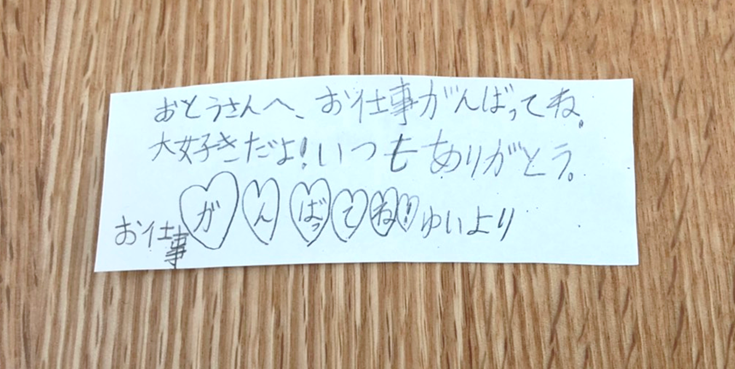 おとうさんへ、お仕事がんばってね。
大好きだよ!いつもありがとう。
お仕事がんばってね!ゆいより